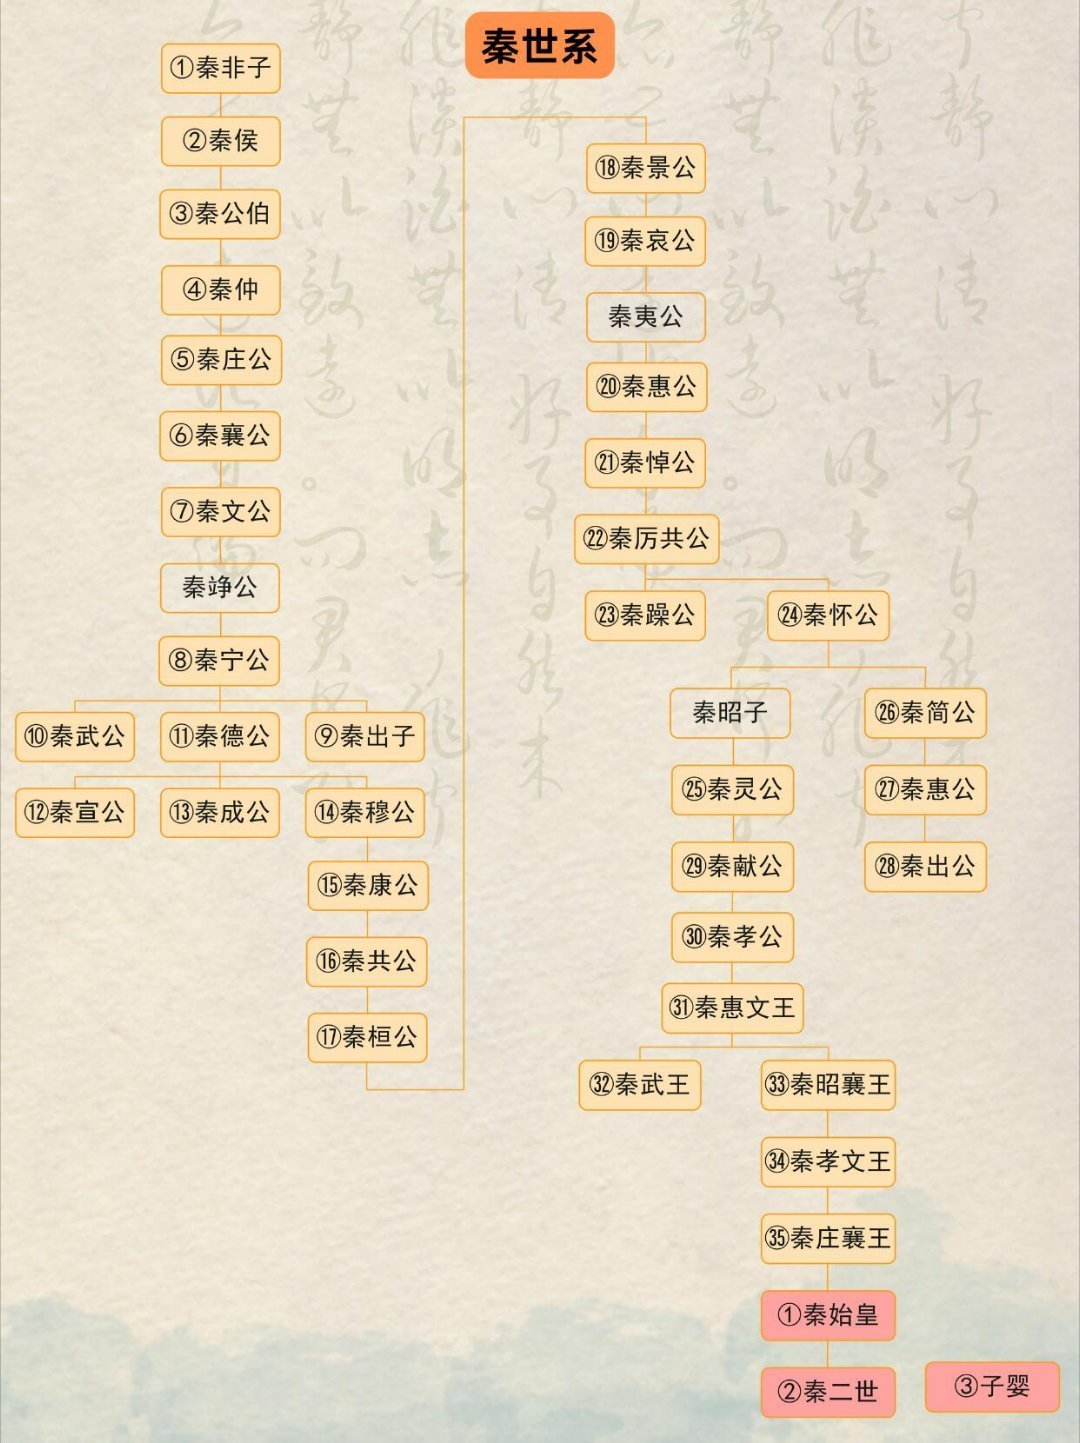 秦世系
①秦非子
②秦侯
③秦公伯
④秦仲
⑤秦庄公
⑥秦襄公
⑦秦文公
秦竫公
⑧秦宁公
⑩秦武公
⑪秦德公
⑨秦出子
⑫秦宣公
⑬秦成公
⑭秦穆公
⑮秦康公
⑯秦共公
⑰秦桓公
⑱秦景公
⑲秦哀公
秦夷公
⑳秦惠公
㉑秦悼公
㉒秦厉共公
㉓秦躁公
㉔秦怀公
秦昭子
㉖秦简公
㉕秦灵公
㉗秦惠公
㉙秦献公
㉘秦出公
㉚秦孝公
㉛秦惠文王
㉜秦武王
㉝秦昭襄王
㉞秦孝文王
㉟秦庄襄王
①秦始皇
②秦二世
③子婴